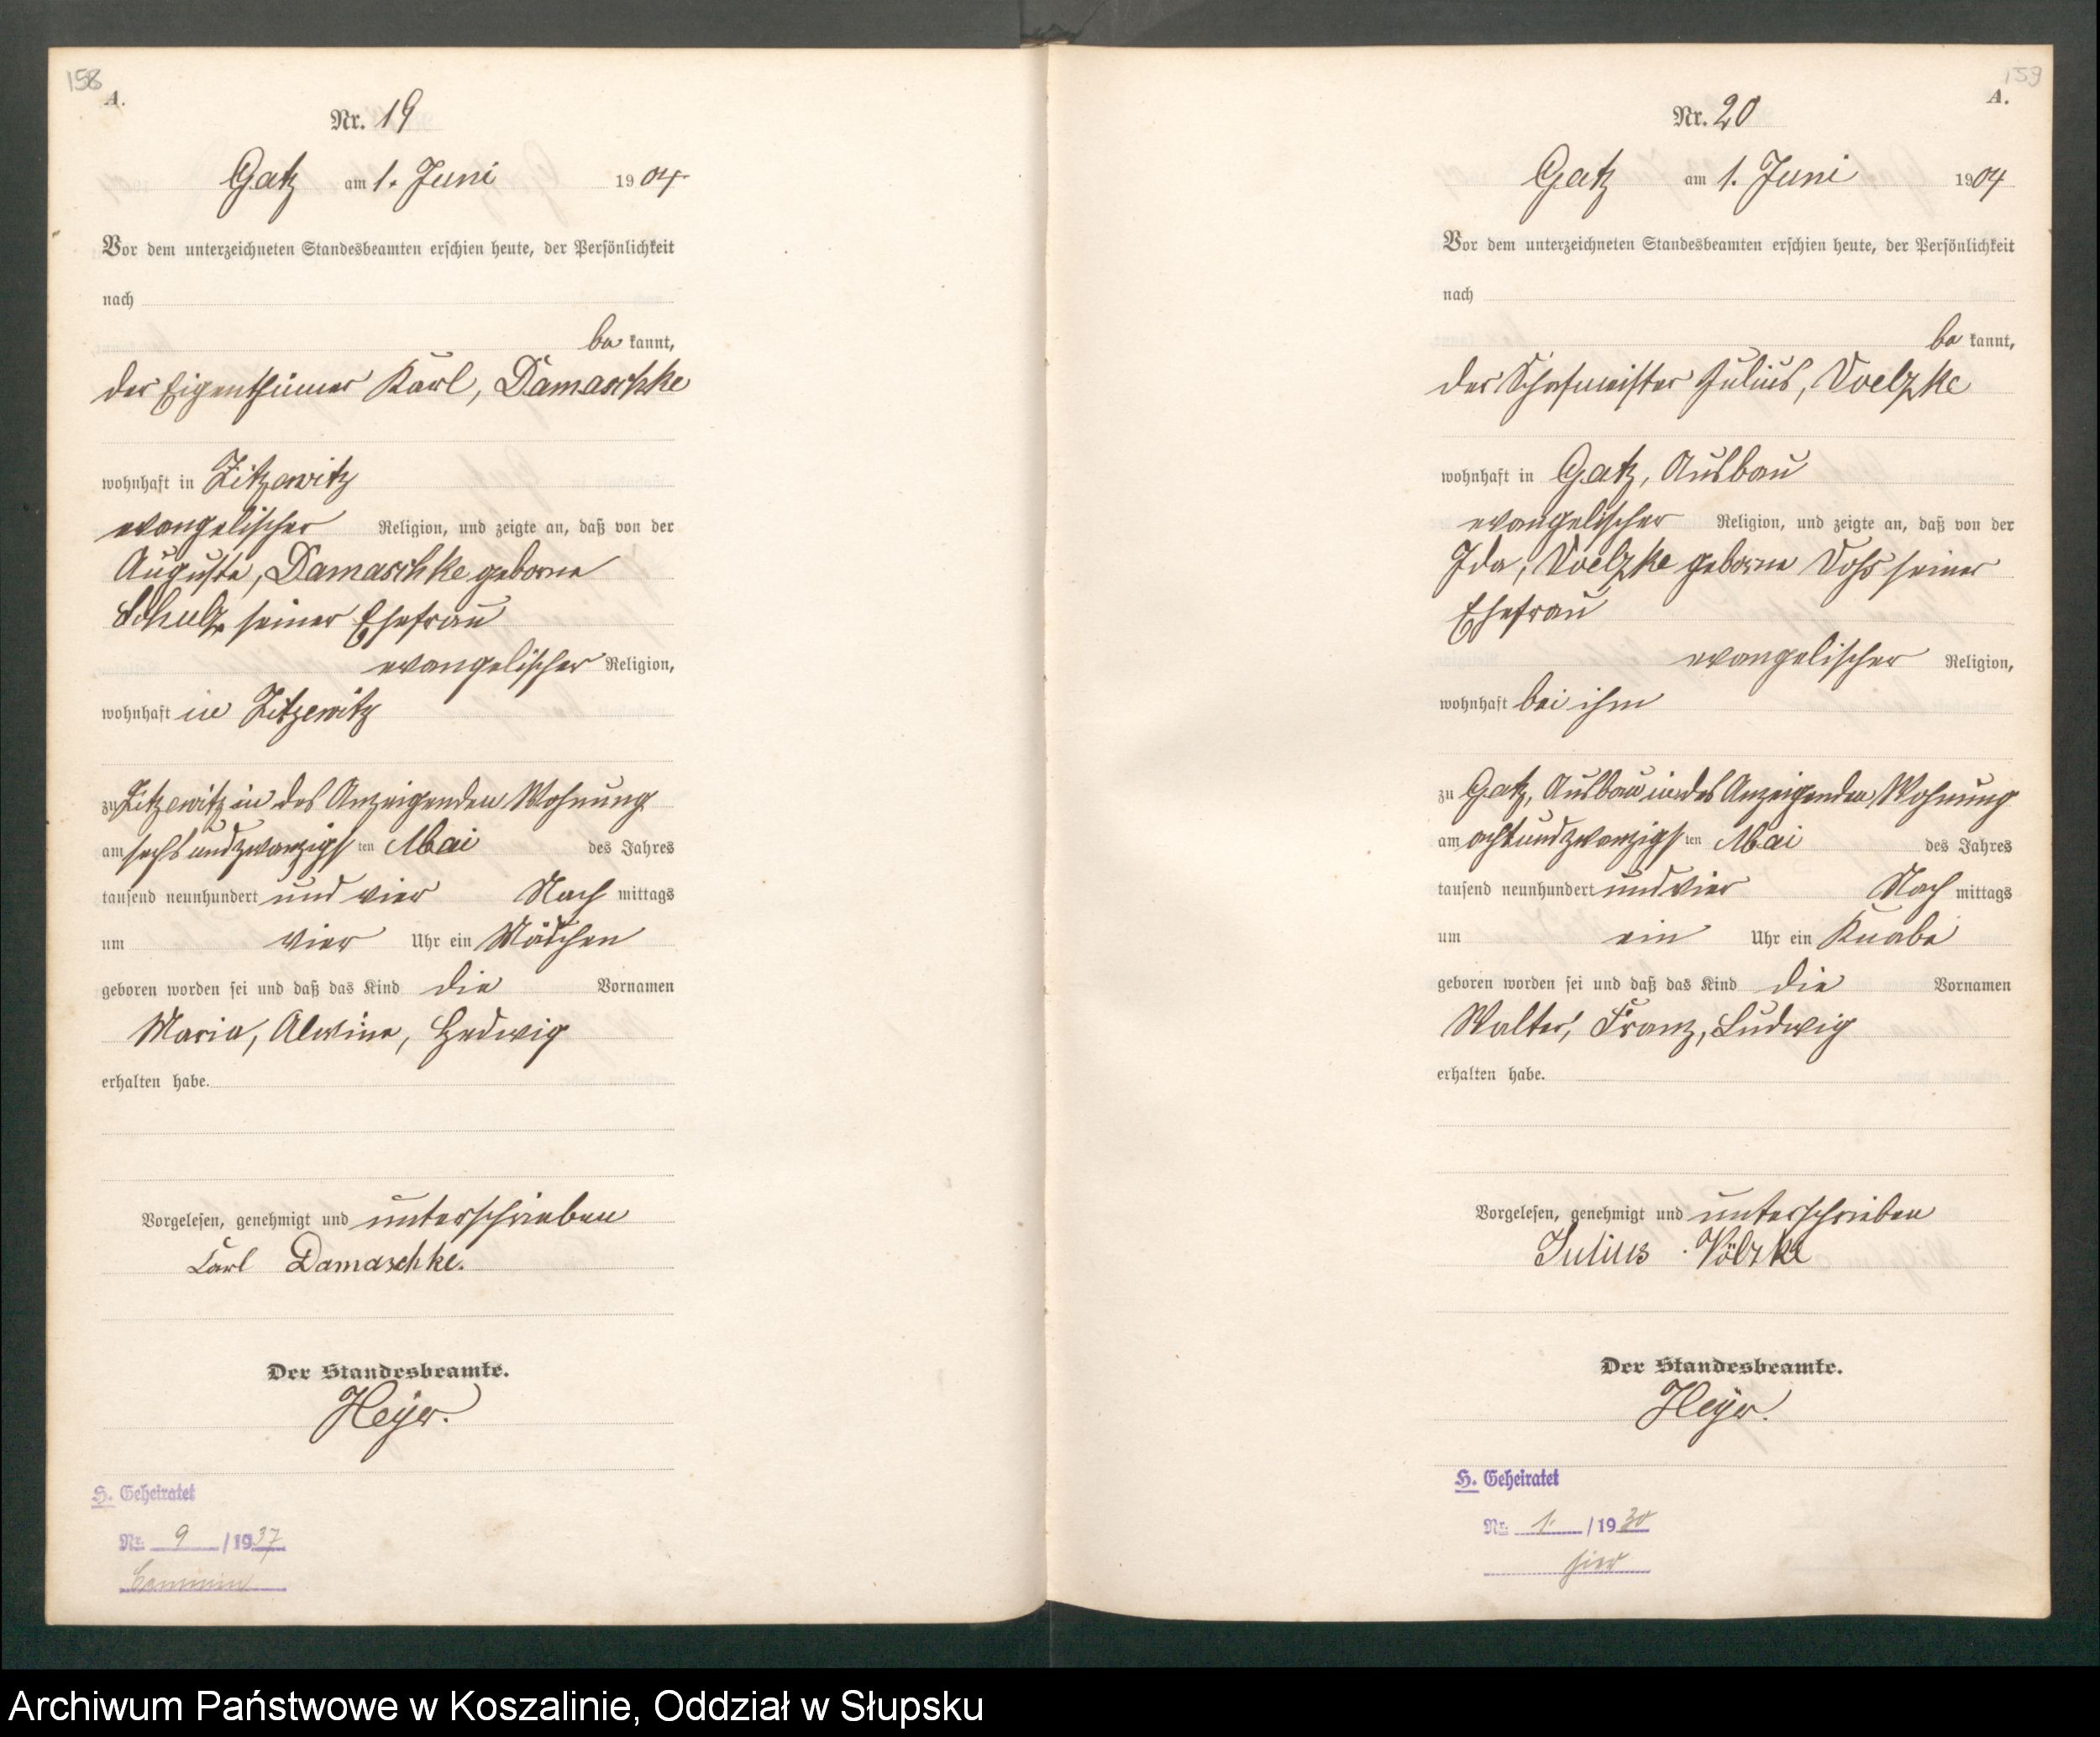 158
A.
Nr. 19
Gatz am 1. Juni 1904
Vor dem unterzeichneten Standesbeamten erschien heute, der Persönlichkeit
nach
be kannt,
der Eigenthümer Karl, Damaschke
wohnhaft in Zitzewitz
evangelischer Religion, und zeigte an, daß von der
Auguste, Damaschke geborne
Schulz seiner Ehefrau
evangelischer Religion,
wohnhaft in Zitzewitz
zu Zitzewitz in des Anzeigenden Wohnung
am sechsundzwanzigsten Mai des Jahres
tausend neunhundert und vier Nach mittags
um vier Uhr ein Mädchen
geboren worden sei und daß das Kind die Vornamen
Maria, Alwine, Hedwig
erhalten habe.
Vorgelesen, genehmigt und unterschrieben
Carl Damaschke.
Der Standesbeamte.
Heyer.
H. Geheiratet
Nr. 9 /1937
Cammin
159
A.
Nr. 20
Gatz am 1. Juni 1904
Vor dem unterzeichneten Standesbeamten erschien heute, der Persönlichkeit
nach
be kannt,
der Schafmeister Julius, Voelzke
wohnhaft in Gatz, Ausbau
evangelischer Religion, und zeigte an, daß von der
Ida, Voelzke geborne Voss seiner
Ehefrau
evangelischer Religion,
wohnhaft bei ihm
zu Gatz, Ausbau in des Anzeigenden Wohnung
am achtundzwanzigsten Mai des Jahres
tausend neunhundert und vier Nach mittags
um ein Uhr ein Knabe
geboren worden sei und daß das Kind die Vornamen
Walter, Franz, Ludwig
erhalten habe.
Vorgelesen, genehmigt und unterschrieben
Julius Völzke
Der Standesbeamte.
Heyer.
H. Geheiratet
Nr. 1. /1930
hier
Archiwum Państwowe w Koszalinie, Oddział w Słupsku